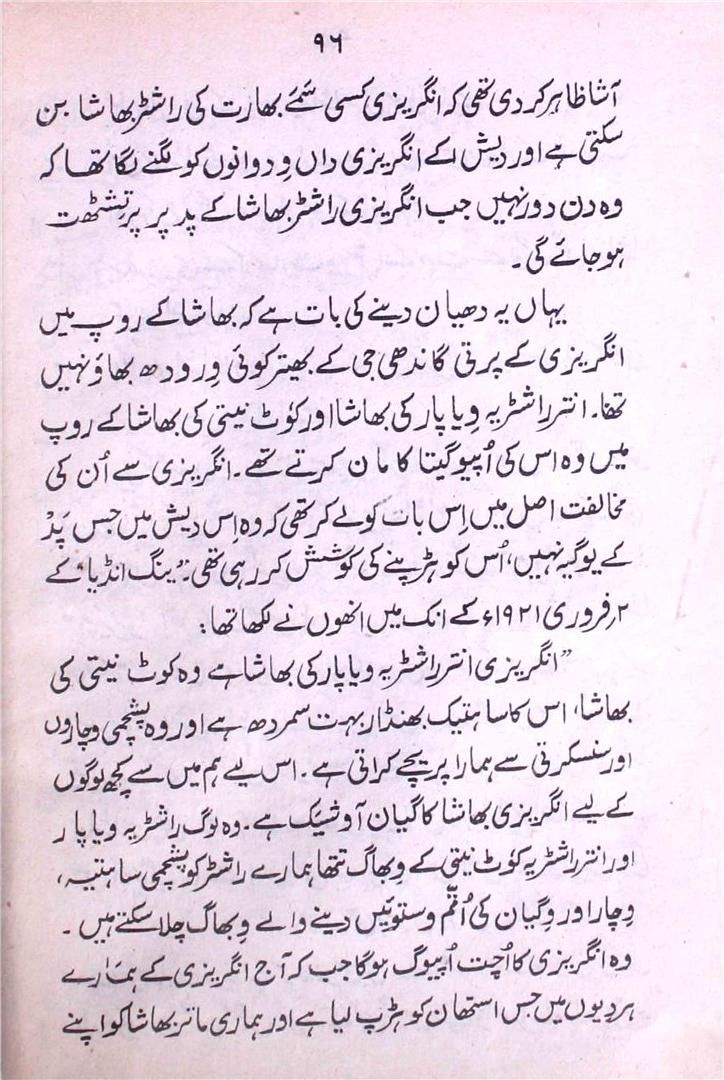 ۹۶
آشا ظاہر کر دی تھی کہ انگریزی کسی سَمَے بھارت کی راشٹر بھاشا بن
سکتی ہے اور دیش کے انگریزی داں وِدوانوں کو لگنے لگا تھا کہ
وہ دن دور نہیں جب انگریزی راشٹر بھاشا کے پد پر پرتِشٹھت
ہو جائے گی۔
یہاں یہ دھیان دینے کی بات ہے کہ بھاشا کے روپ میں
انگریزی کے پرتی گاندھی جی کے بھیتر کوئی وِرودھ بھاؤ نہیں
تھا۔ انتر راشٹریہ وِیاپار کی بھاشا اور کوٗٹ نیتی کی بھاشا کے روپ
میں وہ اس کی اُپیوگیتا کا مان کرتے تھے۔ انگریزی سے اُن کی
مخالفت اصل میں اِس بات کو لے کر تھی کہ وہ اِس دیش میں جس پَدْ
کے یوگیہ نہیں، اُس کو ہڑپنے کی کوشش کر رہی تھی۔ ”ینگ انڈیا“ کے
۲؍فروری ۱۹۲۱ء کے انک میں انھوں نے لکھا تھا:
”انگریزی انتر راشٹریہ ویاپار کی بھاشا ہے وہ کوٹ نیتی کی
بھاشا، اس کا ساہتیک بھنڈار بہت سمردھ ہے اور وہ پشچمی وچاروں
اور سنسکرتی سے ہمارا پریچے کراتی ہے۔ اس لیے ہم میں سے کچھ لوگوں
کے لیے انگریزی بھاشا کا گیان آوشیَک ہے۔ وہ لوگ راشٹریہ ویاپار
اور انتر راشٹریہ کوٗٹ نیتی کے وِبھاگ تتھا ہمارے راشٹر کو پشچمی ساہتیہ،
وِچار اور وِگیان کی اُتّم وستوئیں دینے والے وِبھاگ چلا سکتے ہیں۔
وہ انگریزی کا اُچت اُپیوگ ہوگا جب کہ آج انگریزی کے ہمارے
ہردیوں میں جس استھان کو ہڑپ لیا ہے اور ہماری ماتر بھاشا کو اپنے